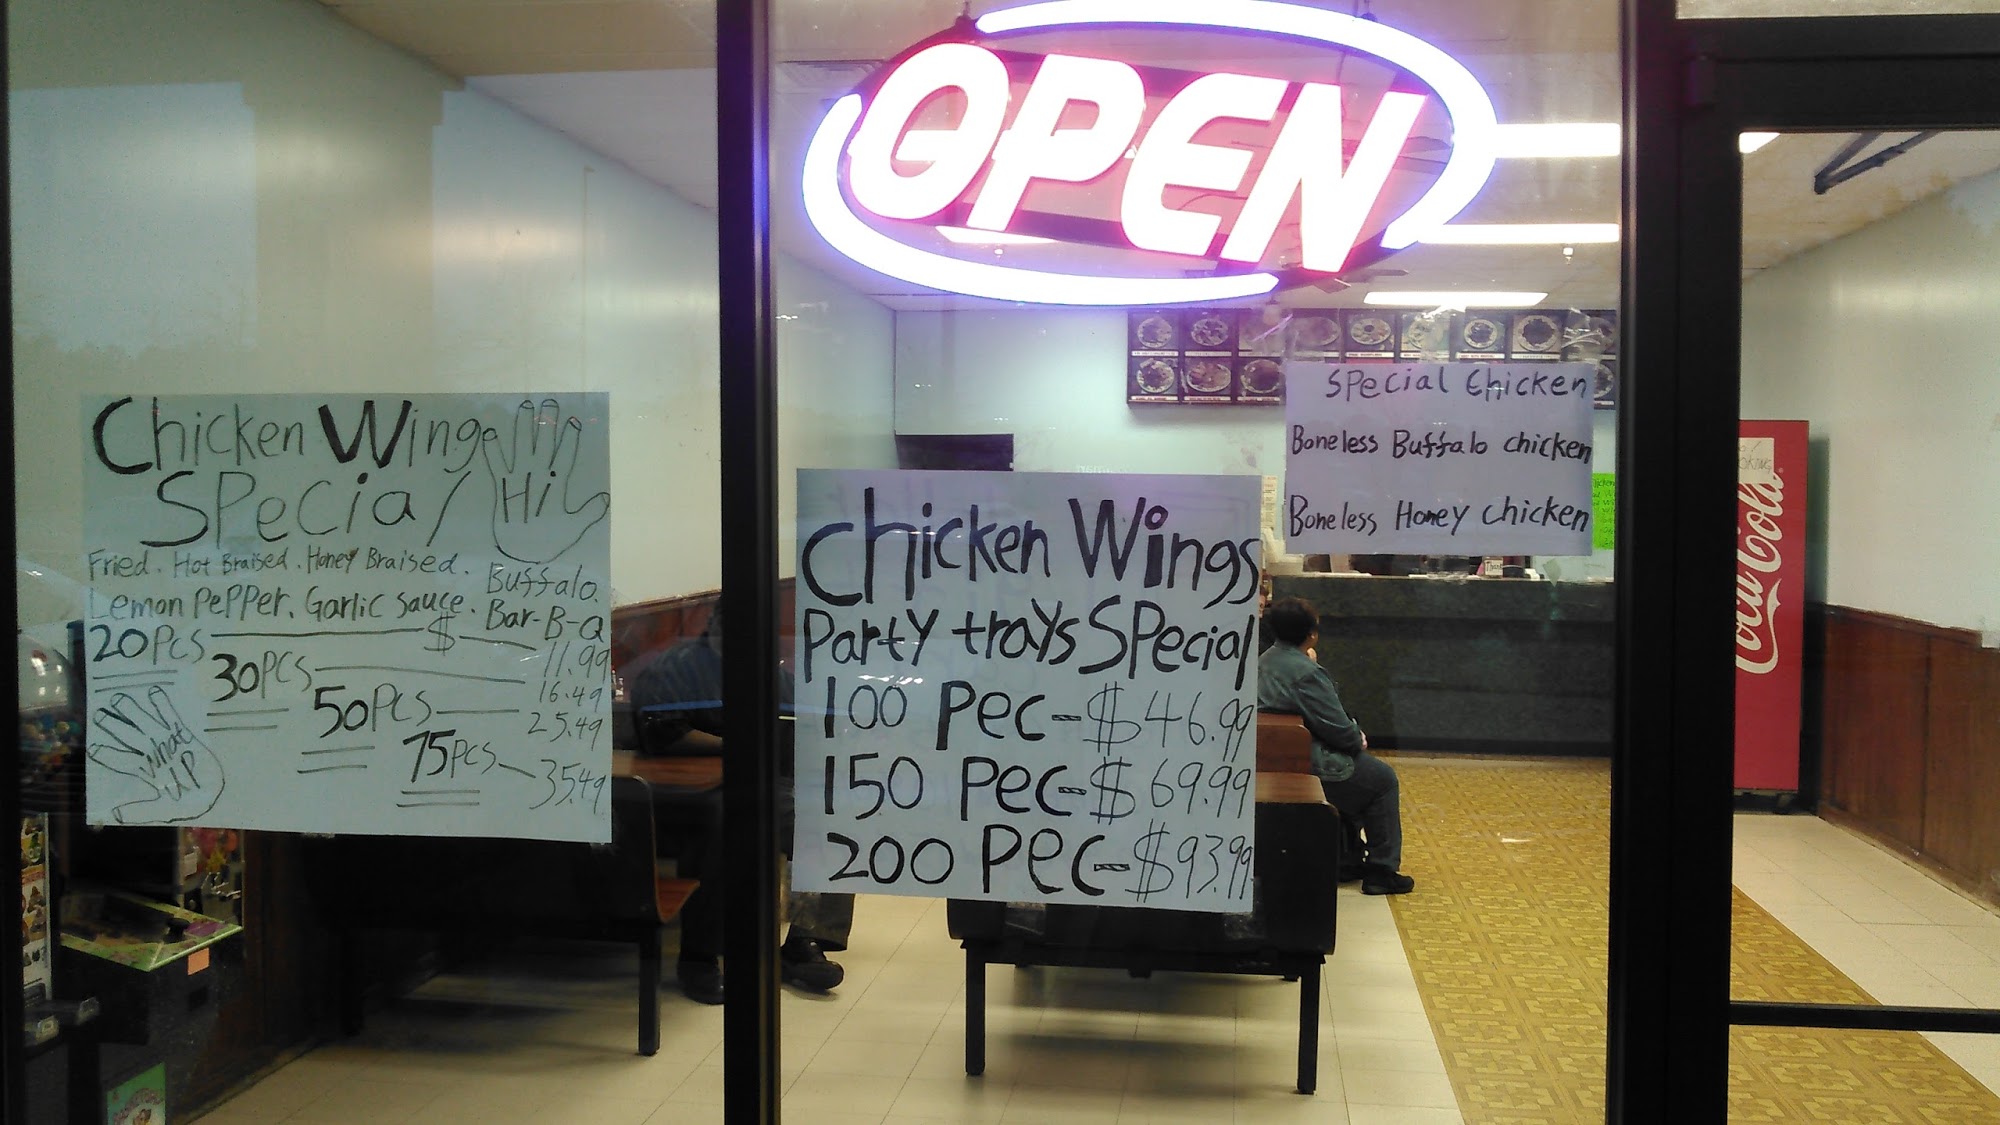 OPEN
Chicken Wing
Special
Hi
Fried. Hot Braised. Honey Braised. Buffalo.
Lemon Pepper. Garlic sauce. Bar-B-Q
20PCS $ 11.99
30PCS 16.49
50PCS 25.49
75PCS 35.49
What
UP
Chicken Wings
Party trays Special
100 Pec-$46.99
150 Pec-$69.99
200 Pec-$93.99
Special Chicken
Boneless Buffalo chicken
Boneless Honey chicken
Coca Cola